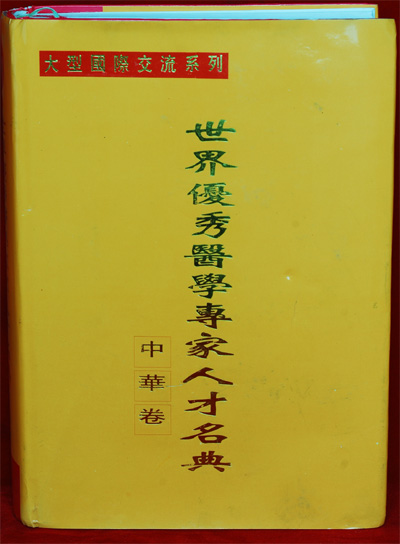 大型國際交流系列
世界優秀醫學專家人才名典
中華卷